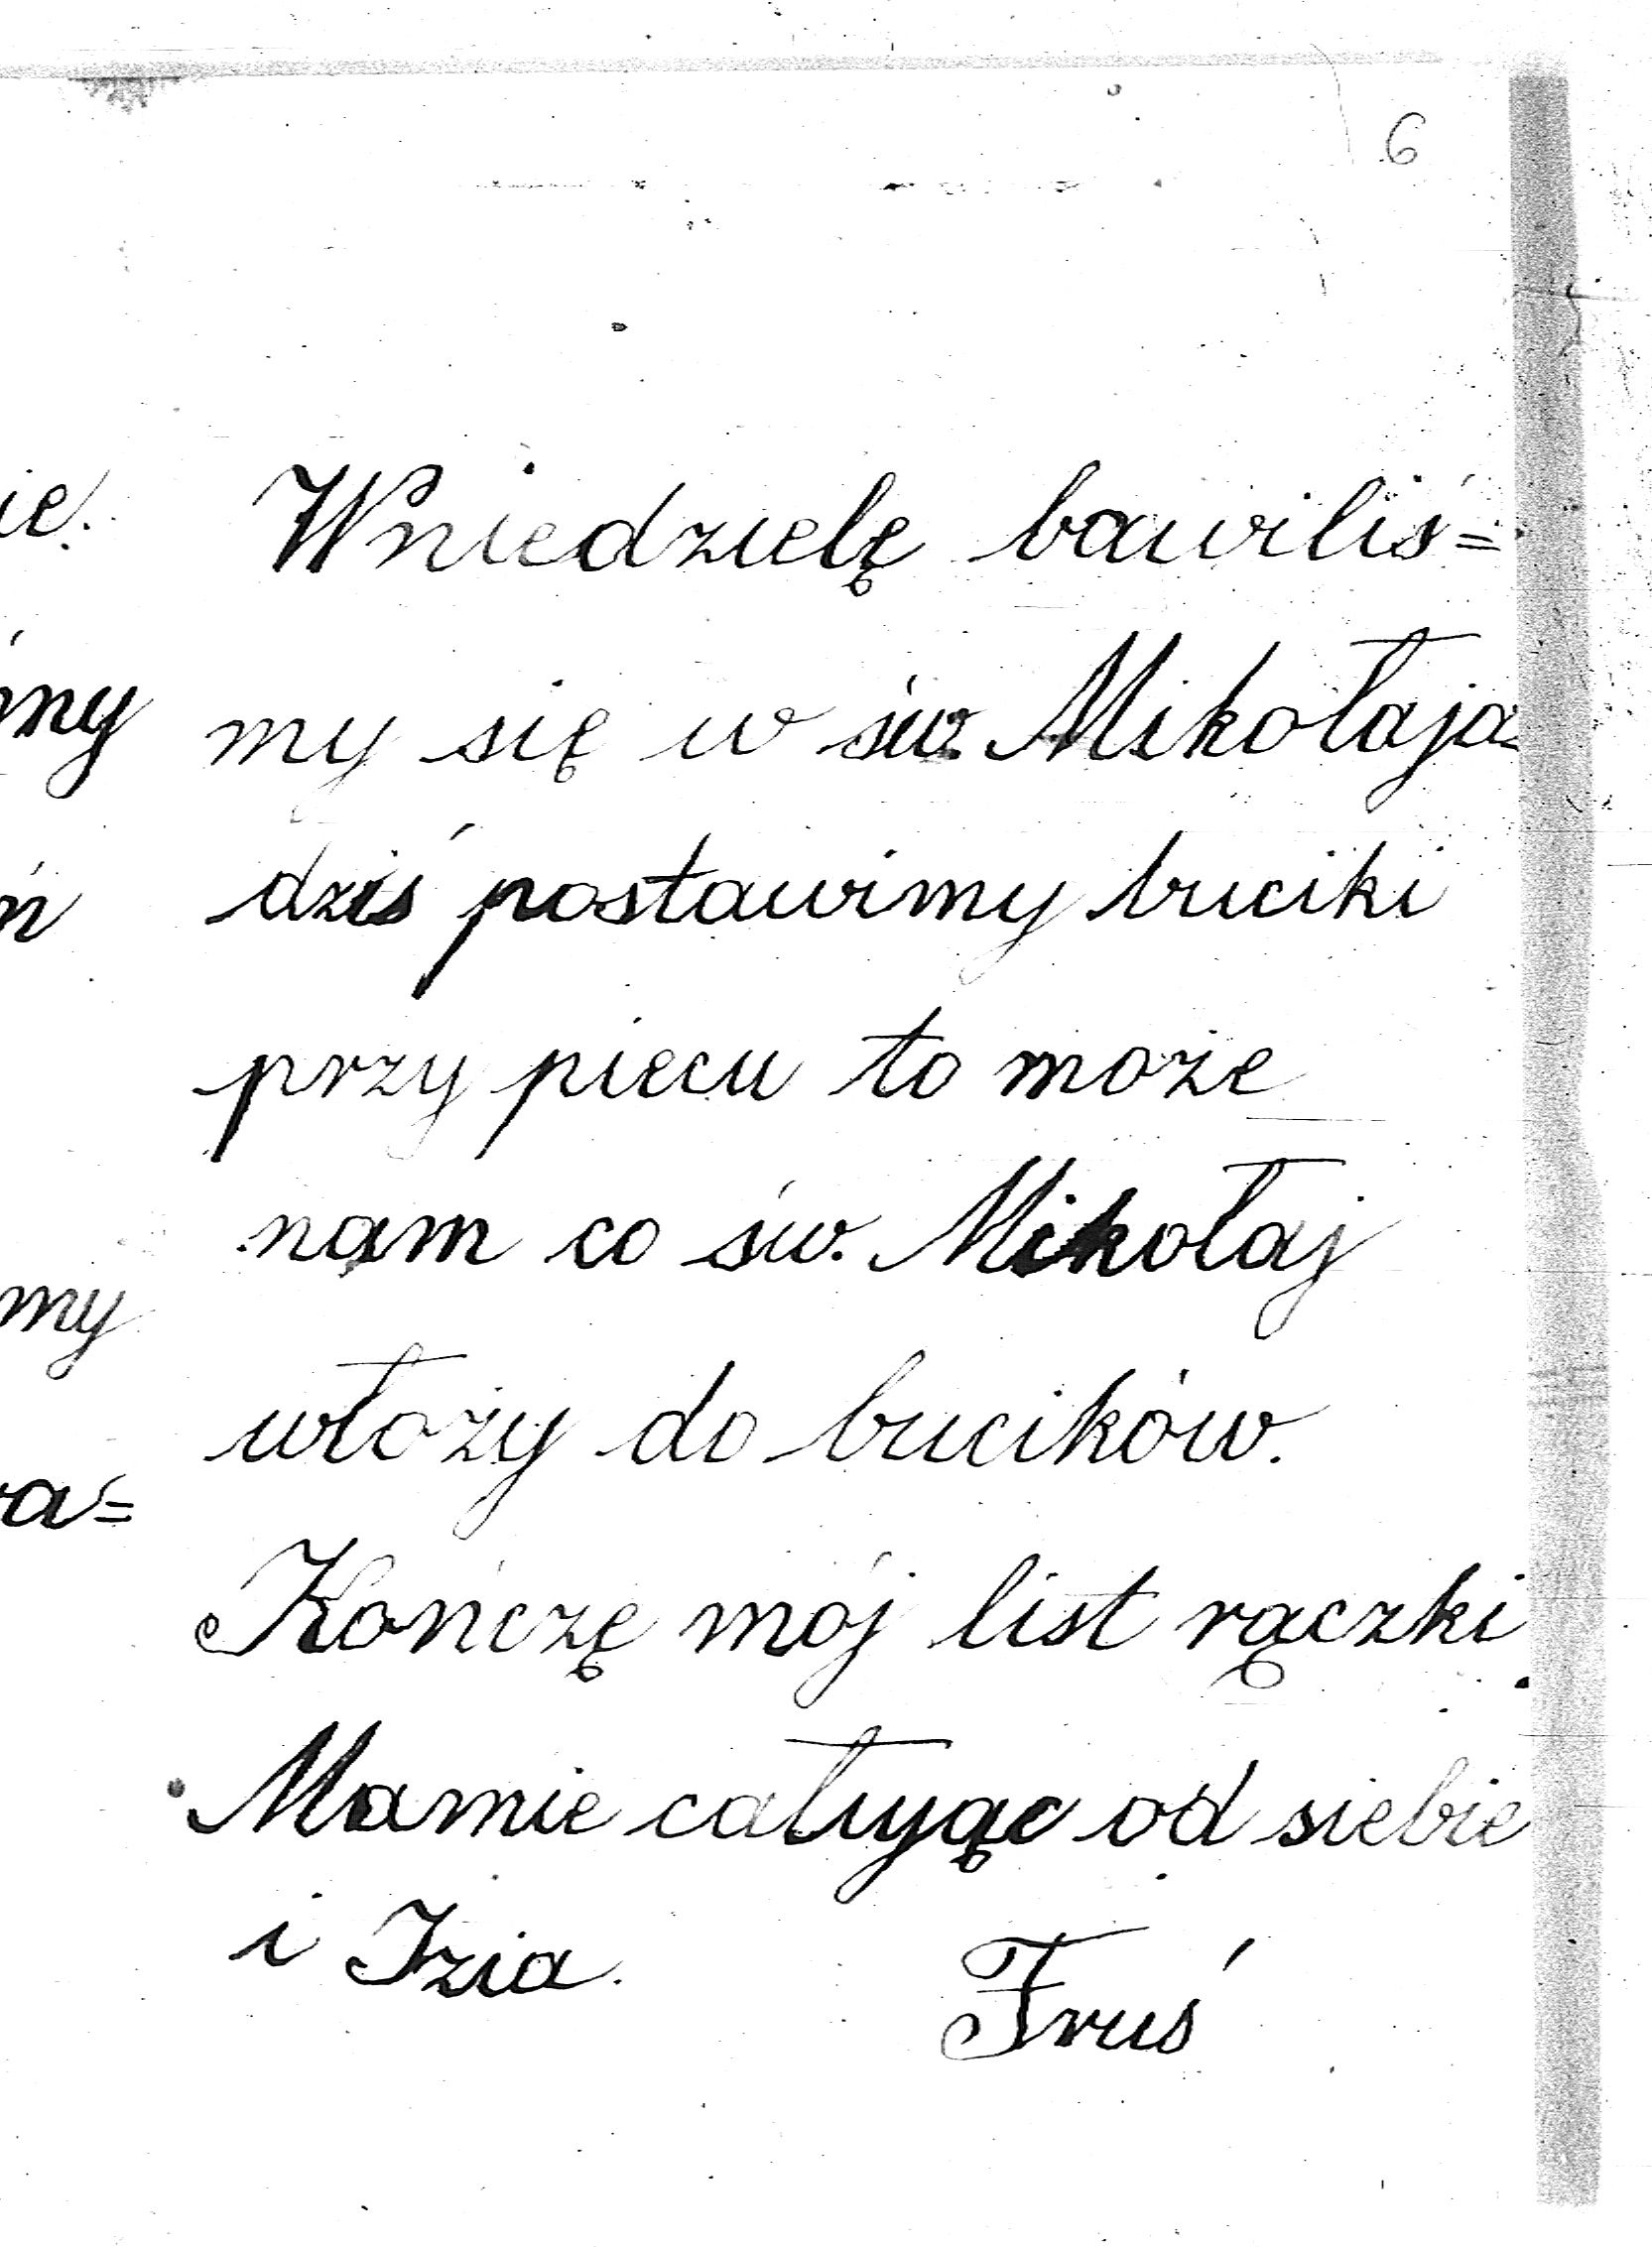 6
Wniedzielę bawiliś=
my się w św. Mikołaja
dziś postawimy buciki
przy piecu to może
nam co św. Mikołaj
włoży do bucików.
Kończę mój list rączki
Mamie całując od siebie
i Izia.
Fruś
ie.
my
ń
my
ra=